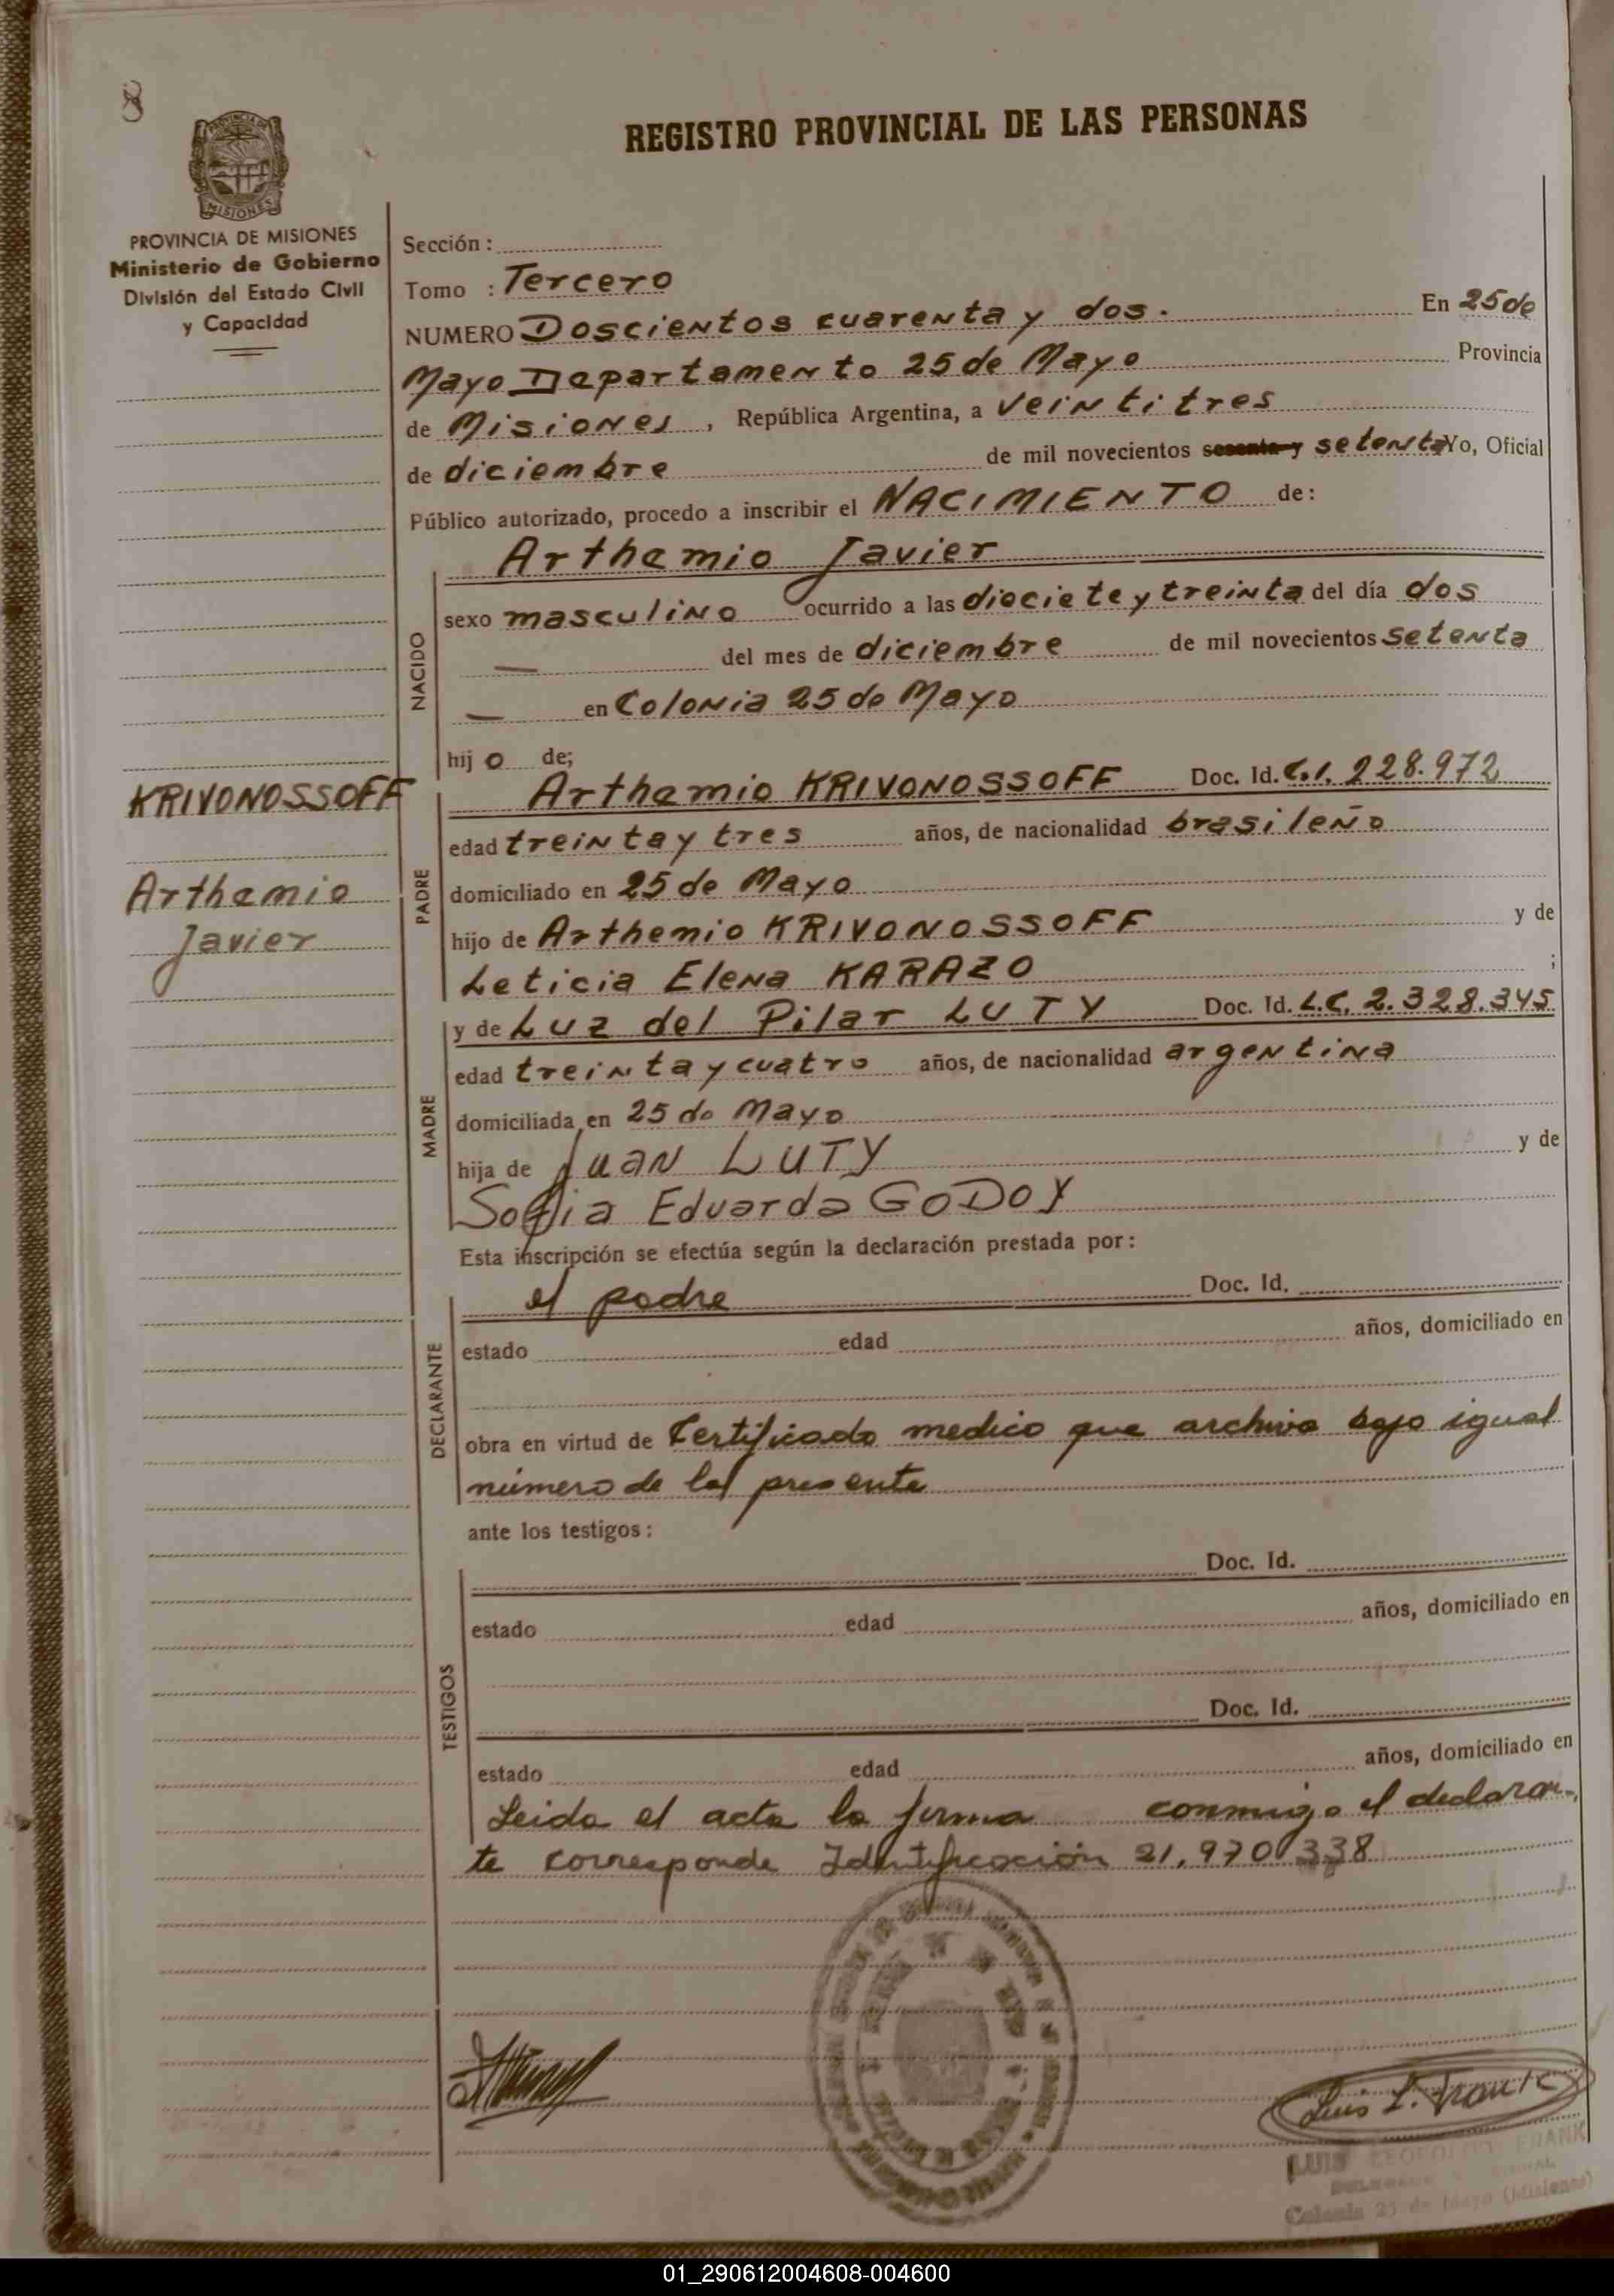 8
REGISTRO PROVINCIAL DE LAS PERSONAS
PROVINCIA DE MISIONES
MISIONES
PROVINCIA DE MISIONES
Ministerio de Gobierno
División del Estado Civil
y Capacidad
Sección :
Tomo : Tercero
NUMERO Doscientos cuarenta y dos. En 25 de
Mayo Departamento 25 de Mayo Provincia
de Misiones, República Argentina, a veintitres
de diciembre de mil novecientos sesenta y setenta Yo, Oficial
Público autorizado, procedo a inscribir el NACIMIENTO de:
Arthemio Javier
NACIDO
sexo masculino ocurrido a las dieciete y treinta del día dos
— del mes de diciembre de mil novecientos setenta
— en Colonia 25 de Mayo
hijo de;
KRIVONOSSOFF
Arthemio
Javier
PADRE
Arthemio KRIVONOSSOFF Doc. Id. C.I. 228.972
edad treinta y tres años, de nacionalidad brasileño
domiciliado en 25 de Mayo
hijo de Arthemio KRIVONOSSOFF y de
Leticia Elena KARAZO ;
MADRE
y de Luz del Pilar LUTY Doc. Id. L.C. 2.328.345
edad treinta y cuatro años, de nacionalidad argentina
domiciliada en 25 de Mayo
hija de Juan LUTY y de
Sofia Eduarda GODOY
Esta inscripción se efectúa según la declaración prestada por:
DECLARANTE
el padre Doc. Id.
estado edad años, domiciliado en
obra en virtud de Certificado medico que archivo bajo igual
número de la presente
ante los testigos:
TESTIGOS
Doc. Id.
estado edad años, domiciliado en
Doc. Id.
estado edad años, domiciliado en
Leida el acta la firma conmigo el declaran-
te corresponde Identificación 21,970338
Luis L. Frank
LUIS LEOPOLDO FRANK
Colonia 25 de Mayo (Misiones)
01_290612004608-004600